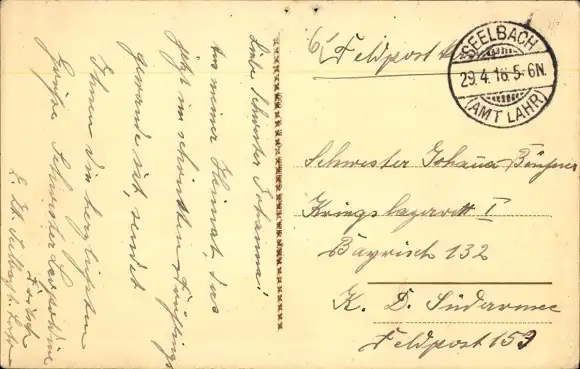 Liebe Schwester Johanna!
Aus meiner Heimat, das
jetzt im schönsten Frühlings
gewande ist, sendet
Ihnen die herzlichsten
Grüße Schwester Leopoldine
z. Zt. Seelbach b. Lahr
Feldpost
SEELBACH
29.4.16.5-6N.
(AMT LAHR)
Schwester Johanna
Kriegslazarett I
Bayrisch 132
K. D. Südarmee
Feldpost 159